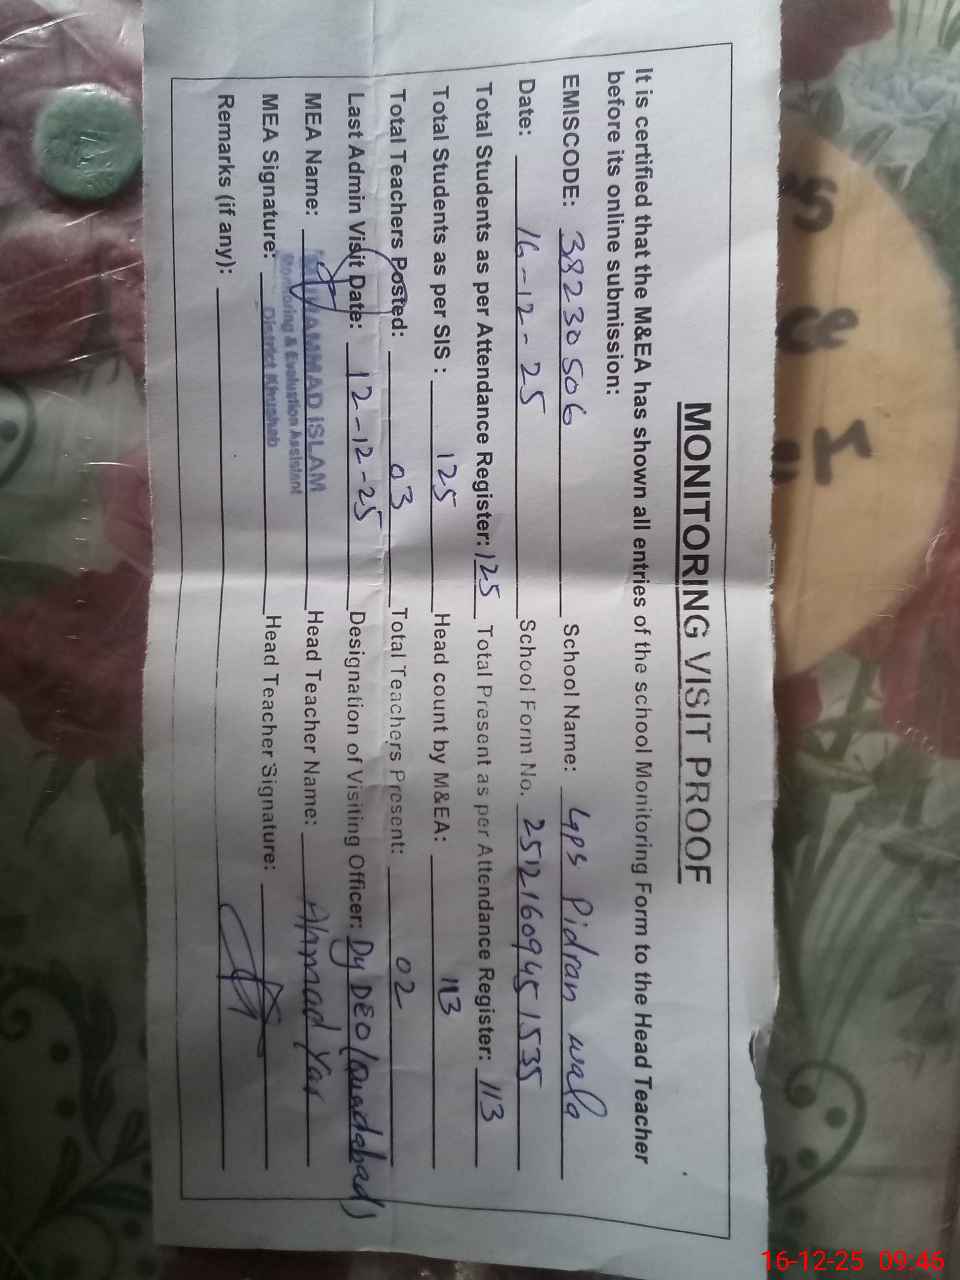 MONITORING VISIT PROOF
It is certified that the M&EA has shown all entries of the school Monitoring Form to the Head Teacher
before its online submission:
EMISCODE: 38230506 School Name: Gps Pidran wala
Date: 16-12-25 School Form No. 25121609451535
Total Students as per Attendance Register: 125 Total Present as per Attendance Register: 113
Total Students as per SIS : 125 Head count by M&EA: 113
Total Teachers Posted: 03 Total Teachers Present: 02
Last Admin Visit Date: 12-12-25 Designation of Visiting Officer: Dy DEO (Quaidabad)
MEA Name: MUHAMMAD ISLAM Head Teacher Name: Ahmad Yar
Monitoring & Evalustion Assistent
MEA Signature: District Khushab Head Teacher Signature:
Remarks (if any):
16-12-25 09:46